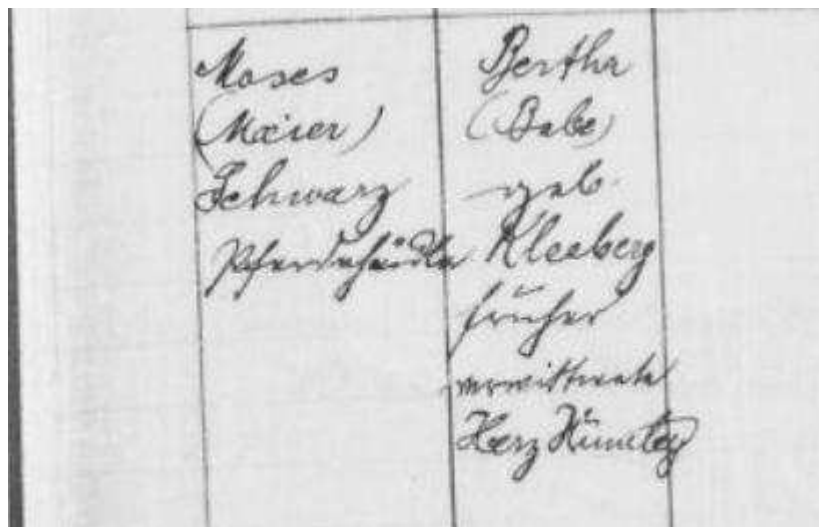 Moses
(Maier)
Schwarz
Pferdehändler
Bertha
(Babe)
geb.
Kleeberg
früher
verwittwete
Herz